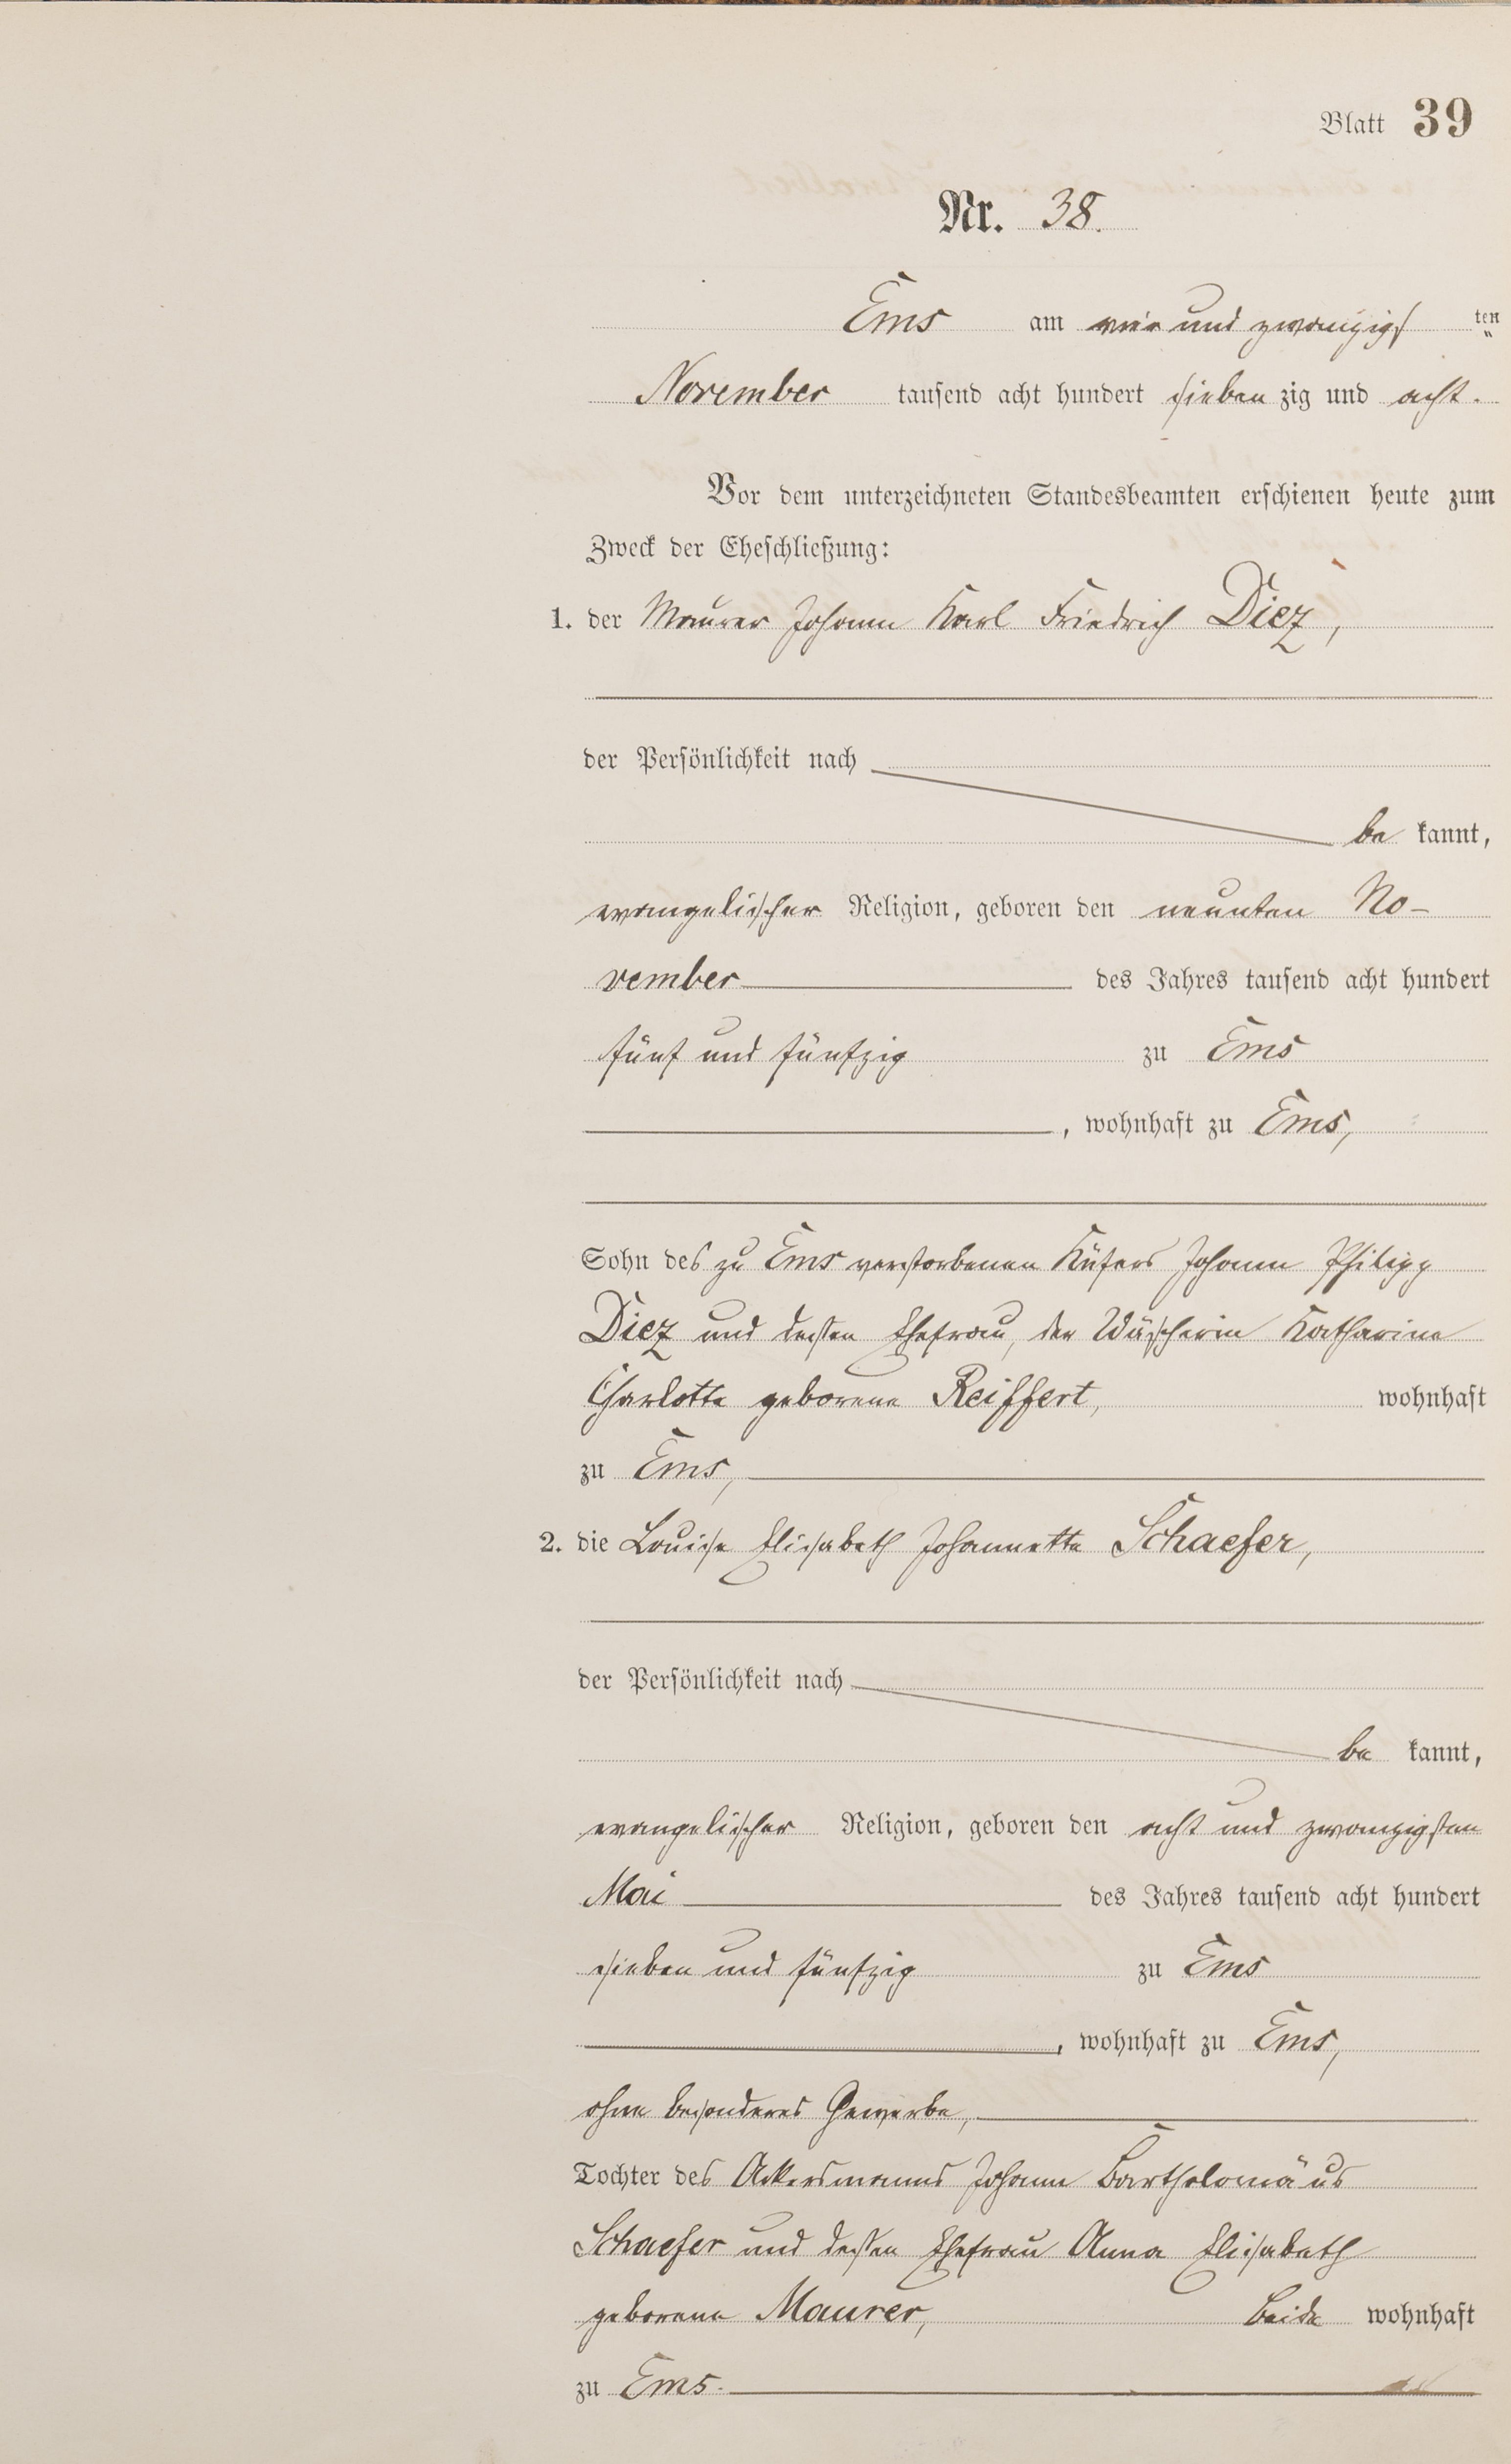 Blatt 39
Nr. 38.
Ems am vier und zwanzigsten
November tausend acht hundert sieben zig und acht.
Vor dem unterzeichneten Standesbeamten erschienen heute zum
Zweck der Eheschließung:
1. der Maurer Johann Karl Friedrich Diez,
der Persönlichkeit nach
be kannt,
evangelischer Religion, geboren den neunten No-
vember des Jahres tausend acht hundert
fünf und fünfzig zu Ems
, wohnhaft zu Ems,
Sohn des zu Ems verstorbenen Küfers Johann Philipp
Diez und dessen Ehefrau, der Wäscherin Katharine
Charlotte geborene Reiffert, wohnhaft
zu Ems,
2. die Louise Elisabeth Johannette Schaefer,
der Persönlichkeit nach
be kannt,
evangelischer Religion, geboren den acht und zwanzigsten
Mai des Jahres tausend acht hundert
sieben und fünfzig zu Ems
, wohnhaft zu Ems,
ohne besonderes Gewerbe,
Tochter des Ackersmanns Johann Bartholomäus
Schaefer und dessen Ehefrau Anna Elisabeth
geborene Maurer, beide wohnhaft
zu Ems.